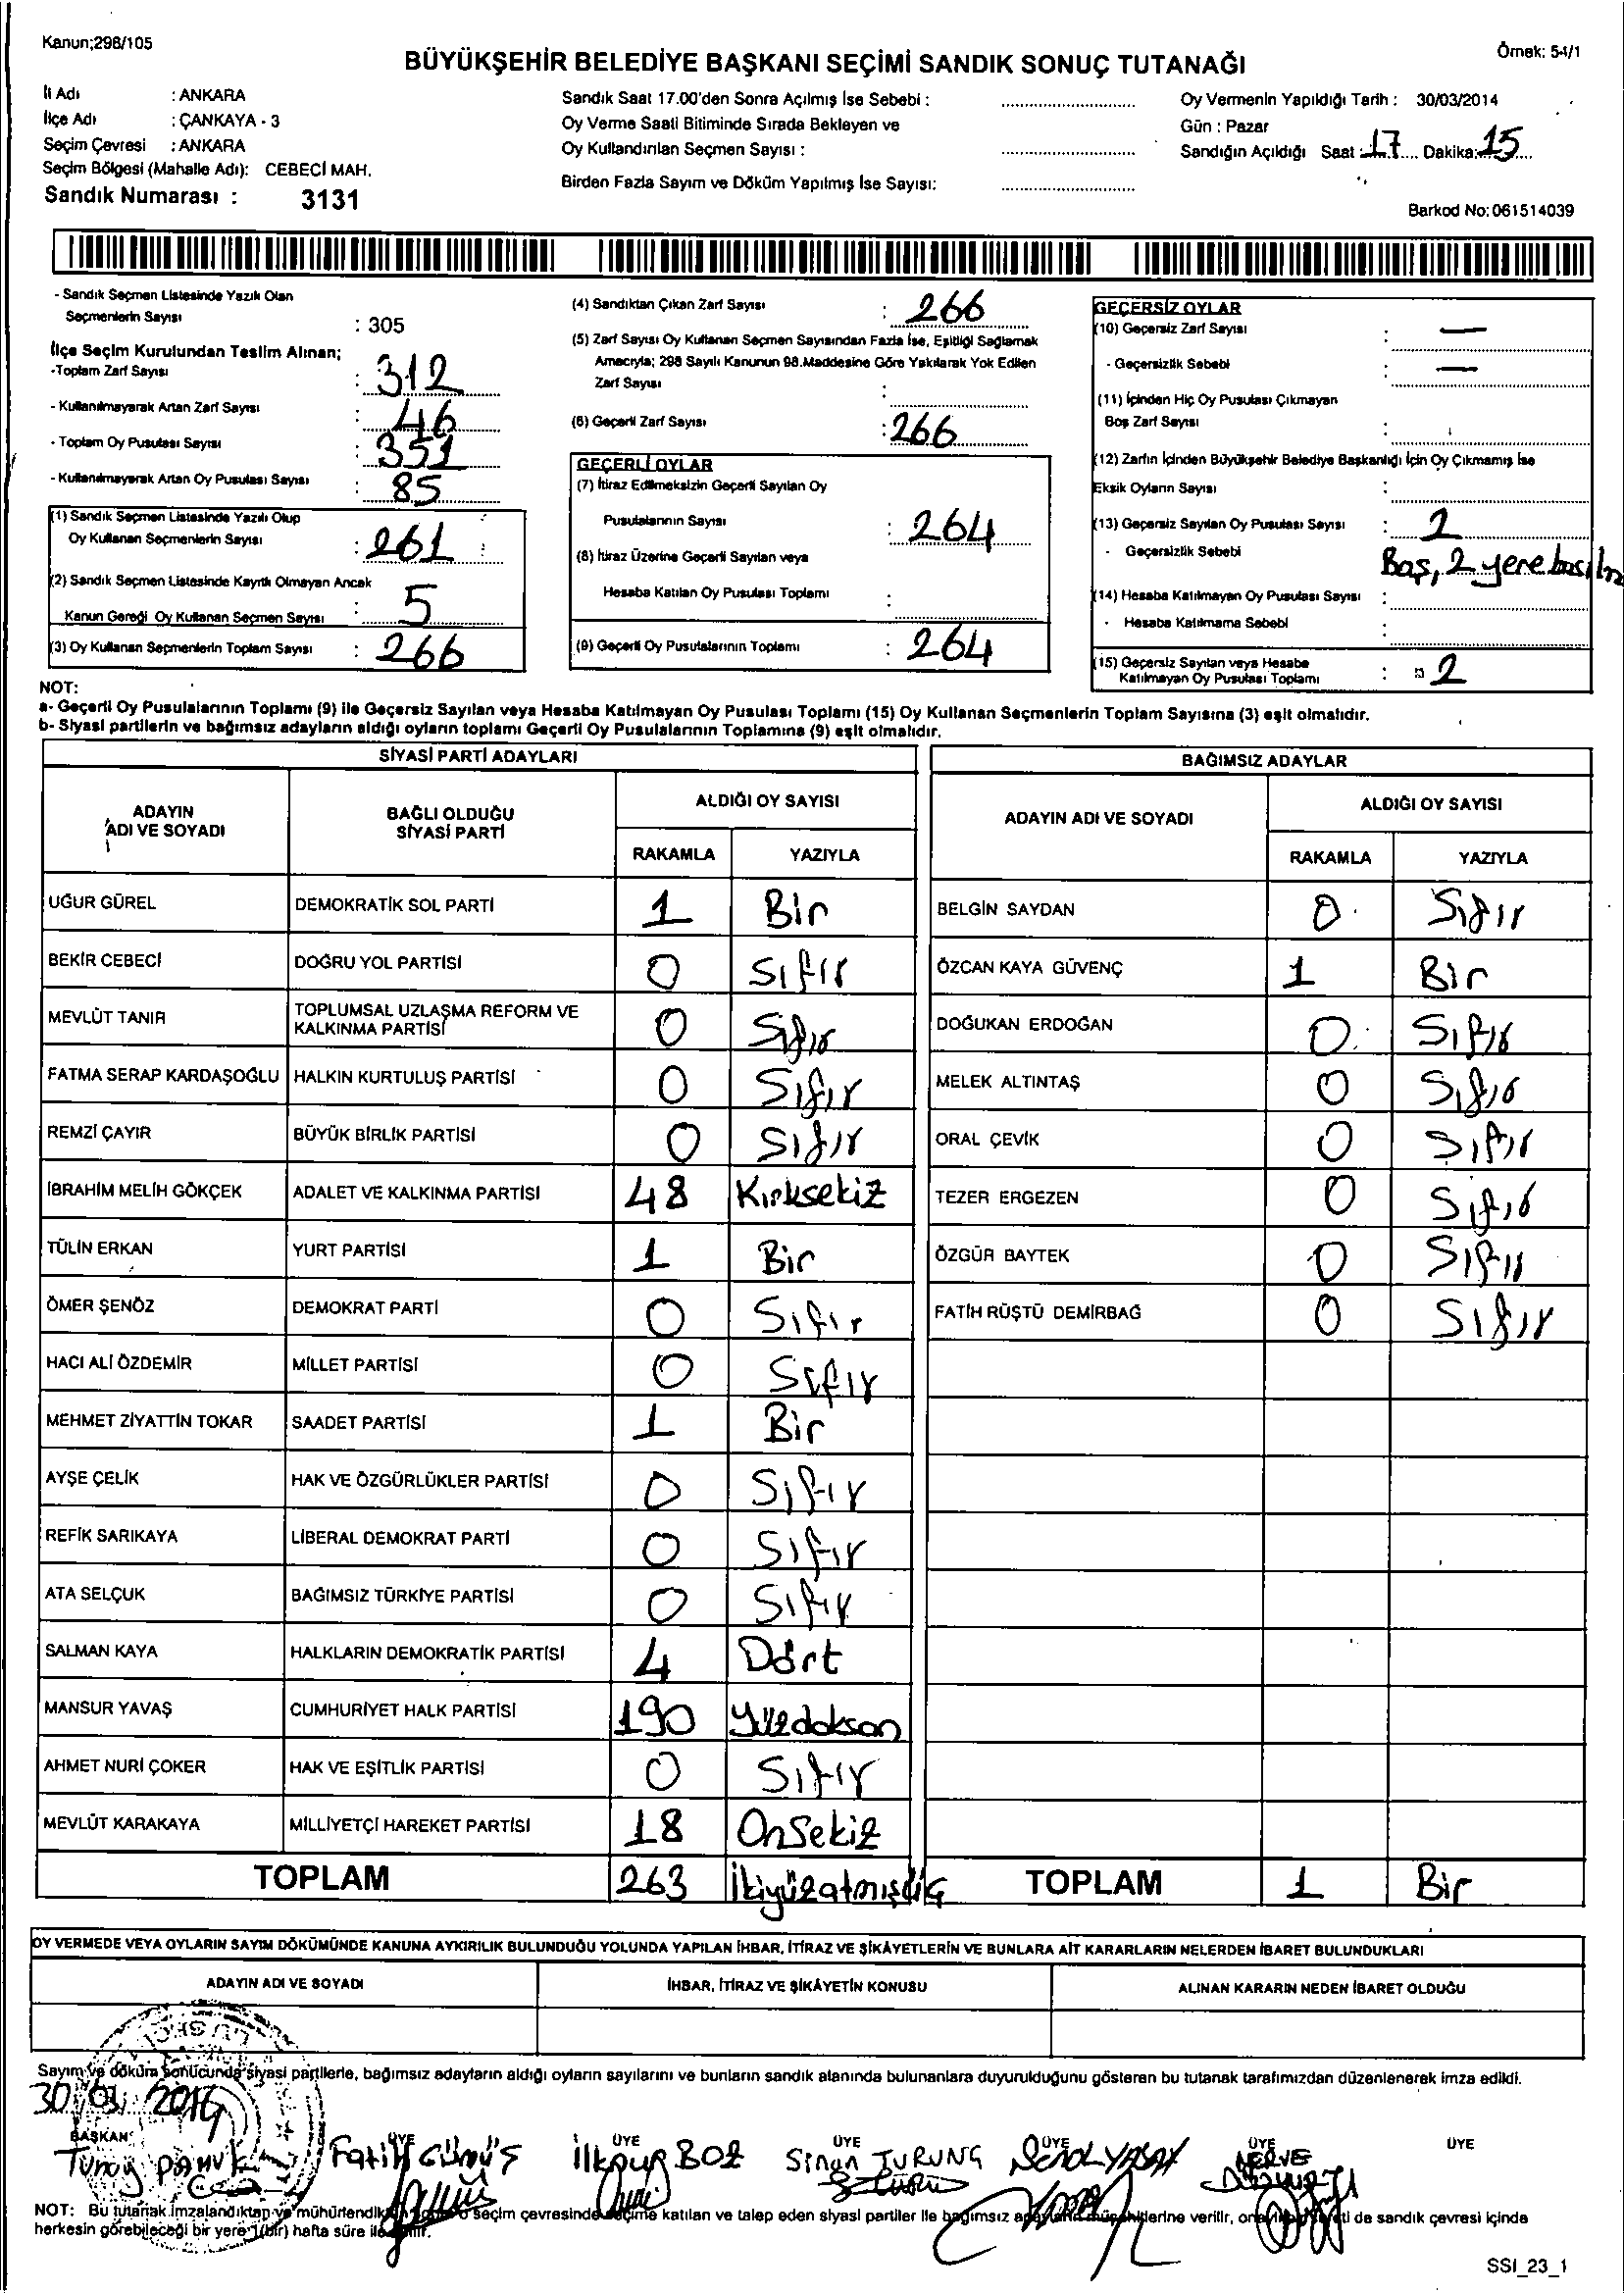 Kanun;298/105
Örnek: 54/1
BÜYÜKŞEHİR BELEDİYE BAŞKANI SEÇİMİ SANDIK SONUÇ TUTANAĞI
İl Adı : ANKARA
İlçe Adı : ÇANKAYA - 3
Seçim Çevresi : ANKARA
Seçim Bölgesi (Mahalle Adı): CEBECİ MAH.
Sandık Numarası : 3131
Sandık Saat 17.00'den Sonra Açılmış İse Sebebi :
Oy Verme Saati Bitiminde Sırada Bekleyen ve
Oy Kullandırılan Seçmen Sayısı :
Birden Fazla Sayım ve Döküm Yapılmış İse Sayısı:
Oy Vermenin Yapıldığı Tarih : 30/03/2014
Gün : Pazar
Sandığın Açıldığı Saat : 17 Dakika: 15
Barkod No: 061514039
- Sandık Seçmen Listesinde Yazılı Olan
Seçmenlerin Sayısı : 305
İlçe Seçim Kurulundan Teslim Alınan;
-Toplam Zarf Sayısı : 312
- Kullanılmayarak Artan Zarf Sayısı : 46
- Toplam Oy Pusulası Sayısı : 351
- Kullanılmayarak Artan Oy Pusulası Sayısı : 85
(1) Sandık Seçmen Listesinde Yazılı Olup
Oy Kullanan Seçmenlerin Sayısı : 261
(2) Sandık Seçmen Listesinde Kayıtlı Olmayan Ancak
Kanun Gereği Oy Kullanan Seçmen Sayısı : 5
(3) Oy Kullanan Seçmenlerin Toplam Sayısı : 266
(4) Sandıktan Çıkan Zarf Sayısı : 266
(5) Zarf Sayısı Oy Kullanan Seçmen Sayısından Fazla İse, Eşitliği Sağlamak
Amacıyla; 298 Sayılı Kanunun 98.Maddesine Göre Yakılarak Yok Edilen
Zarf Sayısı :
(6) Geçerli Zarf Sayısı : 266
GEÇERLİ OYLAR
(7) İtiraz Edilmeksizin Geçerli Sayılan Oy
Pusulalarının Sayısı : 264
(8) İtiraz Üzerine Geçerli Sayılan veya
Hesaba Katılan Oy Pusulası Toplamı :
(9) Geçerli Oy Pusulalarının Toplamı : 264
GEÇERSİZ OYLAR
(10) Geçersiz Zarf Sayısı : —
- Geçersizlik Sebebi : —
(11) İçinden Hiç Oy Pusulası Çıkmayan
Boş Zarf Sayısı :
(12) Zarfın İçinden Büyükşehir Belediye Başkanlığı İçin Oy Çıkmamış İse
Eksik Oyların Sayısı :
(13) Geçersiz Sayılan Oy Pusulası Sayısı : 2
- Geçersizlik Sebebi Boş, 2 yere
(14) Hesaba Katılmayan Oy Pusulası Sayısı :
- Hesaba Katılmama Sebebi :
(15) Geçersiz Sayılan veya Hesaba
Katılmayan Oy Pusulası Toplamı : 2
NOT:
a- Geçerli Oy Pusulalarının Toplamı (9) ile Geçersiz Sayılan veya Hesaba Katılmayan Oy Pusulası Toplamı (15) Oy Kullanan Seçmenlerin Toplam Sayısına (3) eşit olmalıdır.
b- Siyasi partilerin ve bağımsız adayların aldığı oyların toplamı Geçerli Oy Pusulalarının Toplamına (9) eşit olmalıdır.
SİYASİ PARTİ ADAYLARI
ADAYIN ADI VE SOYADI BAĞLI OLDUĞU SİYASİ PARTİ ALDIĞI OY SAYISI
RAKAMLA YAZIYLA
UĞUR GÜREL DEMOKRATİK SOL PARTİ 1 Bir
BEKİR CEBECİ DOĞRU YOL PARTİSİ 0 Sıfır
MEVLÜT TANIR TOPLUMSAL UZLAŞMA REFORM VE KALKINMA PARTİSİ 0 Sıfır
FATMA SERAP KARDAŞOĞLU HALKIN KURTULUŞ PARTİSİ 0 Sıfır
REMZİ ÇAYIR BÜYÜK BİRLİK PARTİSİ 0 Sıfır
İBRAHİM MELİH GÖKÇEK ADALET VE KALKINMA PARTİSİ 48 Kırksekiz
TÜLİN ERKAN YURT PARTİSİ 1 Bir
ÖMER ŞENÖZ DEMOKRAT PARTİ 0 Sıfır
HACI ALİ ÖZDEMİR MİLLET PARTİSİ 0 Sıfır
MEHMET ZİYATTİN TOKAR SAADET PARTİSİ 1 Bir
AYŞE ÇELİK HAK VE ÖZGÜRLÜKLER PARTİSİ 0 Sıfır
REFİK SARIKAYA LİBERAL DEMOKRAT PARTİ 0 Sıfır
ATA SELÇUK BAĞIMSIZ TÜRKİYE PARTİSİ 0 Sıfır
SALMAN KAYA HALKLARIN DEMOKRATİK PARTİSİ 4 Dört
MANSUR YAVAŞ CUMHURİYET HALK PARTİSİ 190 Yüzdoksan
AHMET NURİ ÇOKER HAK VE EŞİTLİK PARTİSİ 0 Sıfır
MEVLÜT KARAKAYA MİLLİYETÇİ HAREKET PARTİSİ 18 Onsekiz
TOPLAM 263 İkiyüzatmışüç
BAĞIMSIZ ADAYLAR
ADAYIN ADI VE SOYADI ALDIĞI OY SAYISI
RAKAMLA YAZIYLA
BELGİN SAYDAN 0 Sıfır
ÖZCAN KAYA GÜVENÇ 1 Bir
DOĞUKAN ERDOĞAN 0 Sıfır
MELEK ALTINTAŞ 0 Sıfır
ORAL ÇEVİK 0 Sıfır
TEZER ERGEZEN 0 Sıfır
ÖZGÜR BAYTEK 0 Sıfır
FATİH RÜŞTÜ DEMİRBAĞ 0 Sıfır
TOPLAM 1 Bir
OY VERMEDE VEYA OYLARIN SAYIM DÖKÜMÜNDE KANUNA AYKIRILIK BULUNDUĞU YOLUNDA YAPILAN İHBAR, İTİRAZ VE ŞİKÂYETLERİN VE BUNLARA AİT KARARLARIN NELERDEN İBARET BULUNDUKLARI
ADAYIN ADI VE SOYADI İHBAR, İTİRAZ VE ŞİKÂYETİN KONUSU ALINAN KARARIN NEDEN İBARET OLDUĞU
Sayım ve döküm sonucunda siyasi partilerle, bağımsız adayların aldığı oyların sayılarını ve bunların sandık alanında bulunanlara duyurulduğunu gösteren bu tutanak tarafımızdan düzenlenerek imza edildi.
30/03/2014
BAŞKAN ÜYE ÜYE ÜYE ÜYE ÜYE ÜYE
Fatih Gümüş Sinan TURUNÇ MERVE
NOT: Bu tutanak imzalandıktan ve mühürlendikten seçim çevresinde seçime katılan ve talep eden siyasi partiler ile bağımsız verilir, de sandık çevresi içinde
herkesin görebileceği bir yere 1(bir) hafta süre ile
SSI_23_1